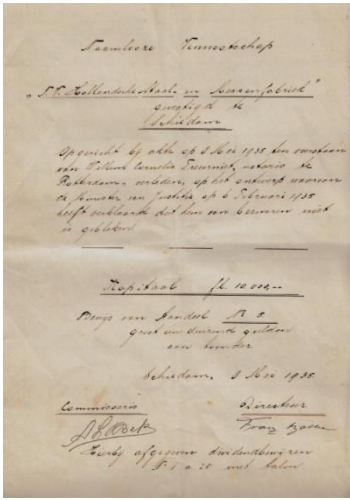 Naamlooze Vennootschap
"N.V. Hollandsche Staal en
gevestigd te
Schiedam
Opgericht bij akte op 8 Mei 1935 ten overstaan
van Willem Cornelis Treurniet, notaris te
Rotterdam, verleden, op het ontwerp waarvan
de Minister van Justitie op 6 Februari 1935
heeft verklaard dat hem van bezwaren niet
is gebleken.
Kapitaal fl. 10.000,--
Bewijs van Aandeel No 5
groot een duizend gulden
aan toonder
Schiedam, 8 Mei 1935
Commissaris Directeur
Franz
Hierbij afgegeven dividendbewijzen
No 1 a 25 met talon